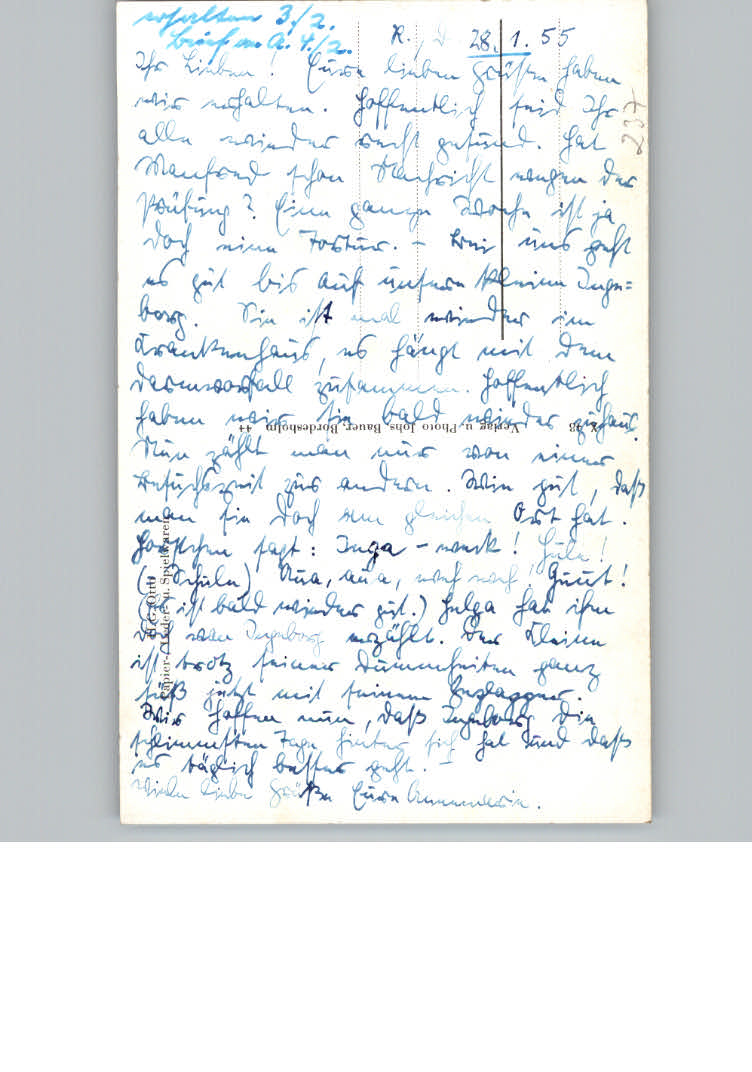 erhalten 3./2.
Brief an A. 4./2.
R., D. 28.1.55
Ihr Lieben! Eure lieben Grüße haben
wir erhalten. Hoffentlich seid Ihr
alle wieder recht gesund. Hat
Manfred schon Nachricht wegen der
Prüfung? Eine ganze Woche ist ja
doch eine Tortur. – Bei uns geht
es gut bis auf unsere kleine Inge=
borg. Sie ist mal wieder im
Krankenhaus, es hängt mit dem
Darmvorfall zusammen. Hoffentlich
haben wir sie bald wieder zuhaus.
Nun zählt man nur von einer
Besuchszeit zur andern. Wie gut, daß
man sie doch am gleichen Ort hat.
sagt: Inga – weck! Hule!
(Schule) Aua, aua, weh weh, Guut!
(Es ist bald wieder gut.) Helga hat ihm
von Ingeborg erzählt. Der Kleine
ist trotz seiner Dummheiten ganz
süß jetzt mit seinem Geplapper.
Wir hoffen nun, daß Ingeborg die
schlimmsten Tage hinter sich hat und daß
es täglich besser geht. –
Viele liebe Grüße Eure Annemarie.
237
Verlag u. Photo Johs. Bauer, Bordesholm
44
H. G. Ott
Papier-, Leder- u. Spielwaren